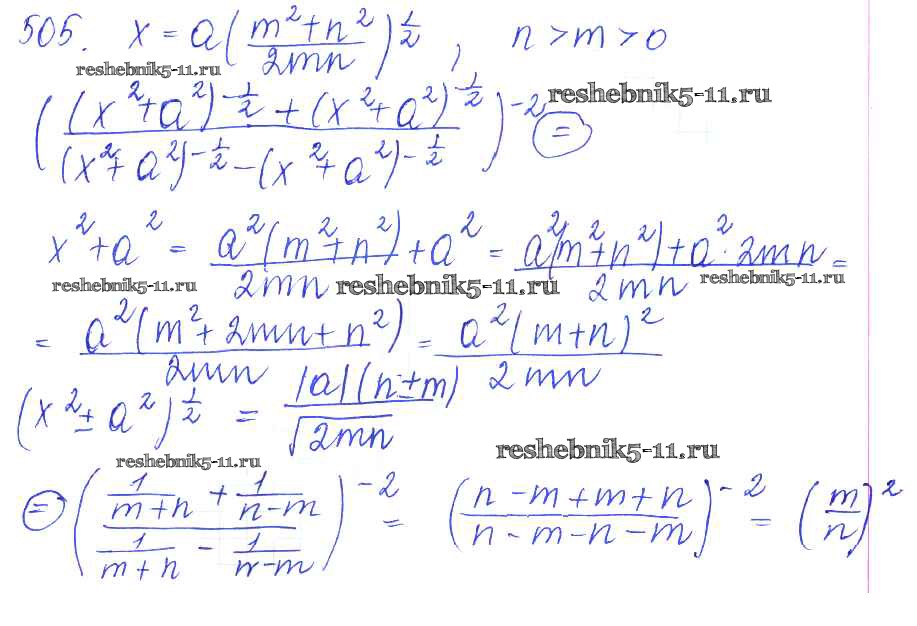 505. x = a((m²+n²)/(2mn))^(1/2), n > m > 0
reshebnik5-11.ru
(((x²+a²)^(-1/2) + (x²+a²)^(-1/2))/((x²+a²)^(-1/2) - (x²+a²)^(-1/2)))^(-2) =
reshebnik5-11.ru
x²+a² = a²(m²+n²)/(2mn) + a² = (a²(m²+n²)+a²·2mn)/(2mn) =
reshebnik5-11.ru reshebnik5-11.ru reshebnik5-11.ru
= a²(m²+2mn+n²)/(2mn) = a²(m+n)²/(2mn)
(x²±a²)^(1/2) = |a|(n±m)/√(2mn)
reshebnik5-11.ru reshebnik5-11.ru
= ((1/(m+n) + 1/(n-m))/(1/(m+n) - 1/(n-m)))^(-2) = ((n-m+m+n)/(n-m-n-m))^(-2) = (m/n)²